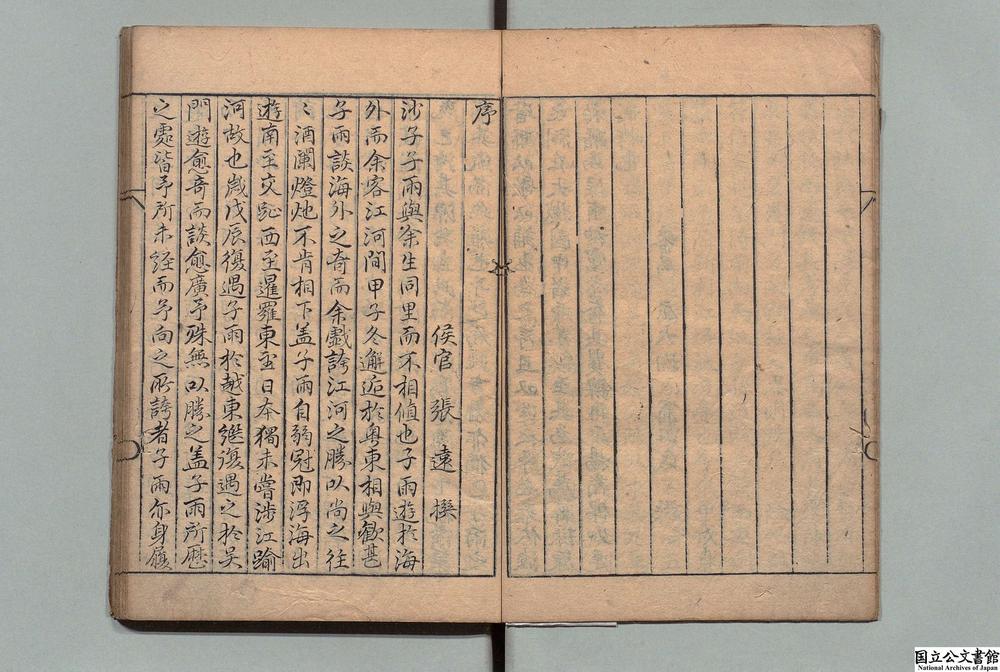 序
侯官 張遠 撰
沙子子雨與余生同里而不相值也子雨遊於海
外而余客江河間甲子冬邂逅於粤東相與歡甚
子雨談海外之奇而余戲誇江河之勝以尚之往
〻酒闌燈灺不肯相下盖子雨自弱冠即浮海出
遊南至交趾西至暹羅東至日本獨未嘗渉江踰
河故也歲戊辰復遇子雨於越東繼復遇之於吴
門遊愈奇而談愈廣予殊無以勝之盖子雨所歴
之處皆予所未經而予向之所誇者子雨亦身履
国立公文書館
National Archives of Japan